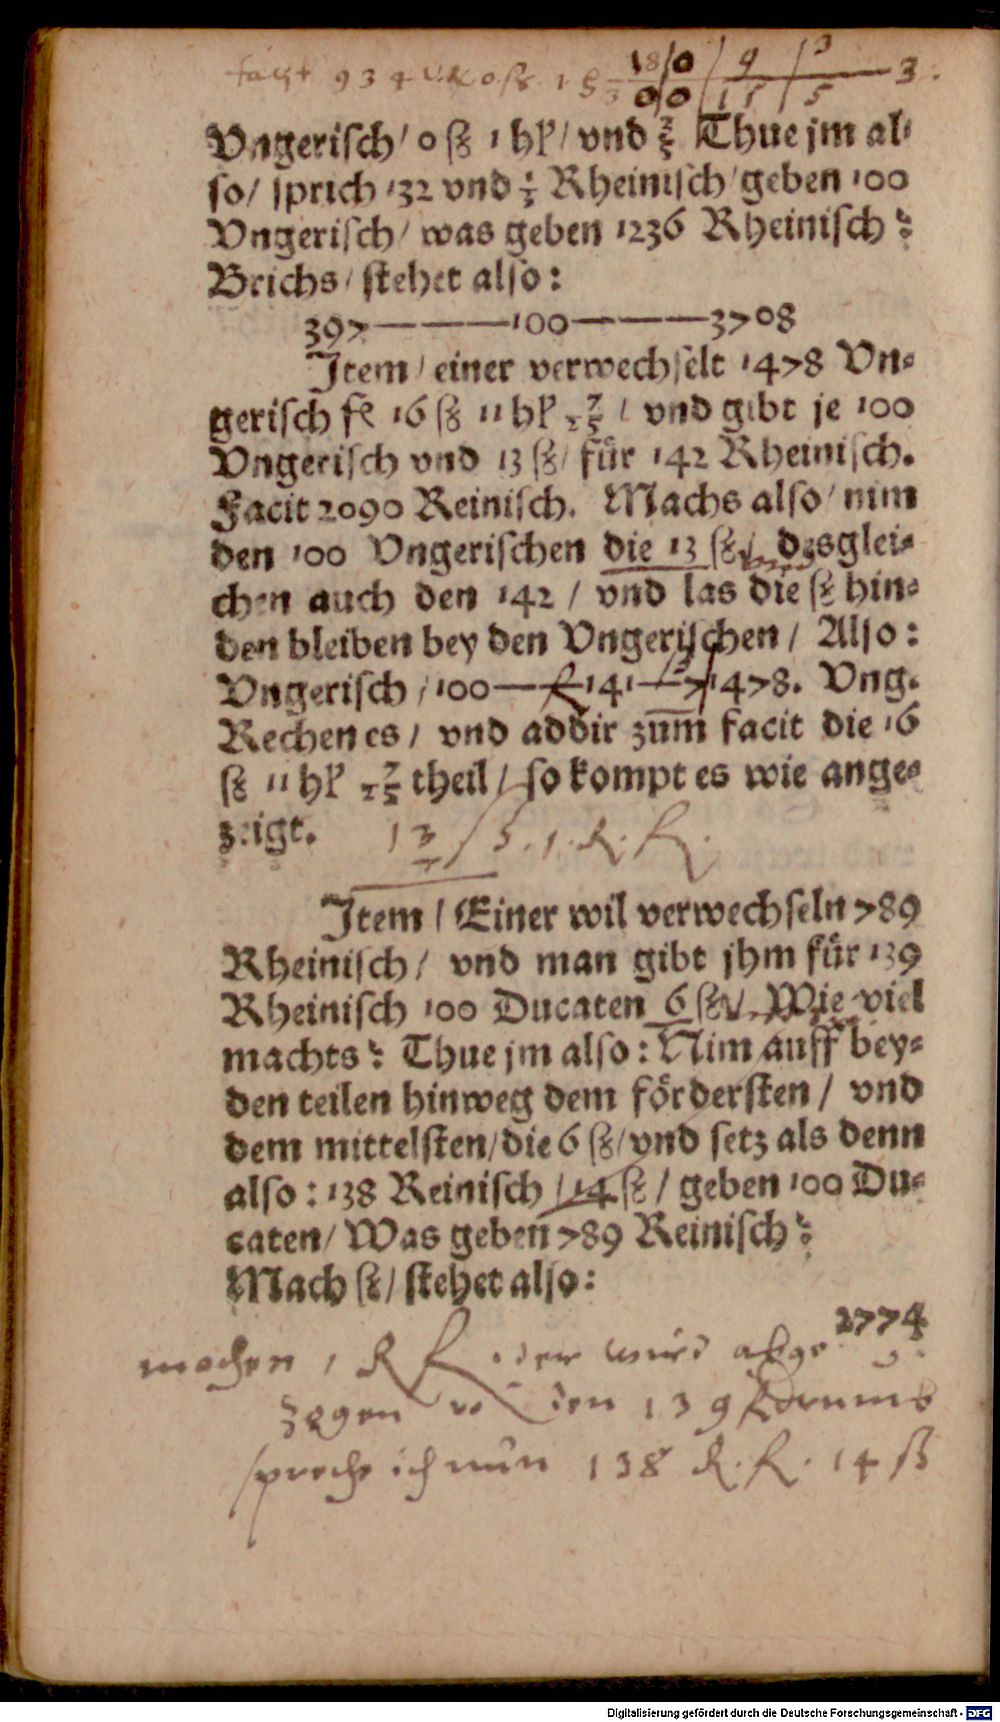 facit 934 0 ß 1 180 9 3 3
00 15 5
Vngerisch / 0 ß 1 hl̓ / vnd ⅗ Thue jm al⸗
so / sprich 132 vnd ⅓ Rheinisch / geben 100
Vngerisch / was geben 1236 Rheinisch?
Brichs / stehet also:
397———100———3708
Item / einer verwechselt 1478 Vn⸗
gerisch fl 16 ß 11 hl̓ 7/25 / vnd gibt je 100
Vngerisch vnd 13 ß / für 142 Rheinisch.
Facit 2090 Reinisch. Machs also / nim
den 100 Vngerischen die 13 ß / desglei⸗
chen auch den 142 / vnd las die ß hin⸗
den bleiben bey den Vngerischen / Also:
Vngerisch / 100—fl 141—7 1478. Vng.
Rechen es / vnd addir zum̄ facit die 16
ß 11 hl̓ 7/25 theil / so kompt es wie ange⸗
zeigt. 13 ß. 1. R. fl.
Item / Einer wil verwechseln 789
Rheinisch / vnd man gibt jhm für 139
Rheinisch 100 Ducaten 6 ß / Wie viel
machts? Thue jm also: Nim auff bey⸗
den teilen hinweg dem fördersten / vnd
dem mittelsten / die 6 ß / vnd setz als denn
also: 138 Reinisch / 14 ß / geben 100 Du⸗
caten / Was geben 789 Reinisch?
Mach ß / stehet also:
2774
machen 1 R fl der wird abge
zogen von den 139 fl
spreche ich nun 138 R. fl. 14 ß
Digitalisierung gefördert durch die Deutsche Forschungsgemeinschaft - DFG